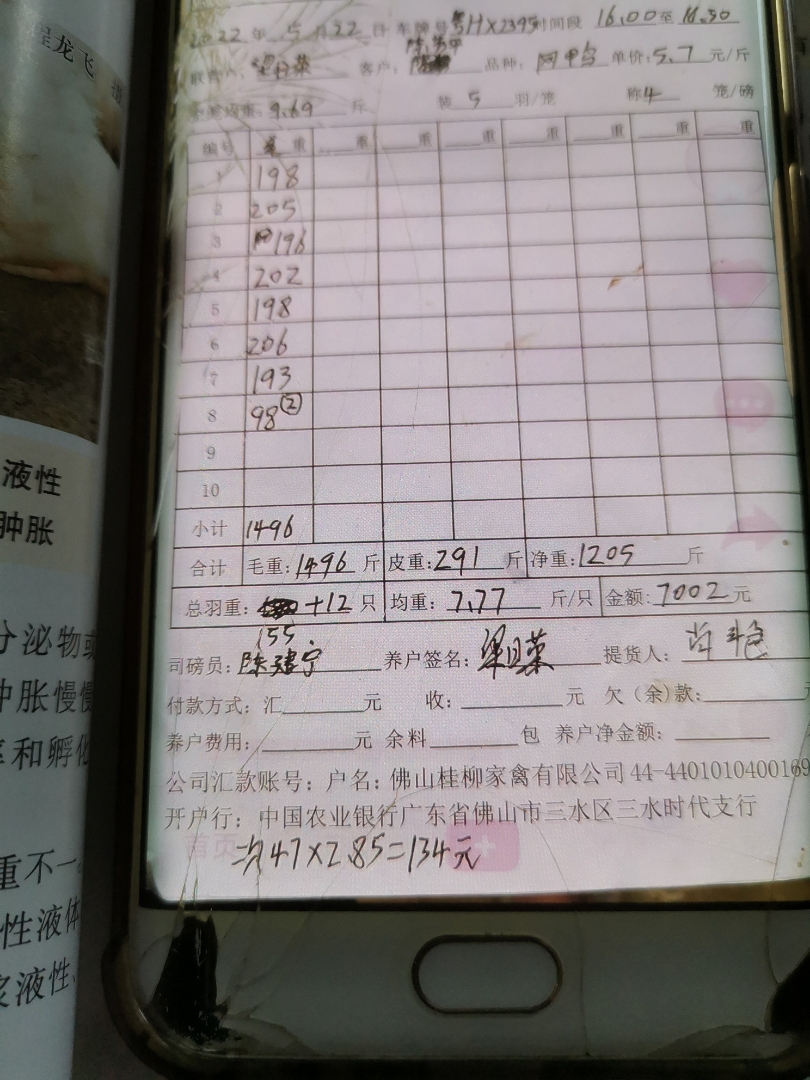 程龙飞
2022年5月22日 车牌号 粤HX2395 时间段 16.00至16.30
客户: 品种: 网鸭 单价:5.7元/斤
9.69斤 装5羽/笼 称4笼/磅
编号 毛重 重 重 重 重 重 重 重
1 198
2 205
3 196
4 202
5 198
6 206
7 193
8 98②
9
10
小计 1496
合计 毛重:1496斤 皮重:291斤 净重:1205斤
总羽重: +12只 均重: 7.77斤/只 金额:7002元
155
司磅员: 陈建宁 养户签名: 梁日荣 提货人:
付款方式: 汇 元 收: 元 欠(余)款:
养户费用: 元 余料 包 养户净金额:
公司汇款账号: 户名: 佛山桂柳家禽有限公司 44-4401010400169
开户行: 中国农业银行广东省佛山市三水区三水时代支行
47×2.85=134元
首页
液性
肿胀
分泌物或
肿胀慢慢
率和孵化
重不一
性液体
浆液性、